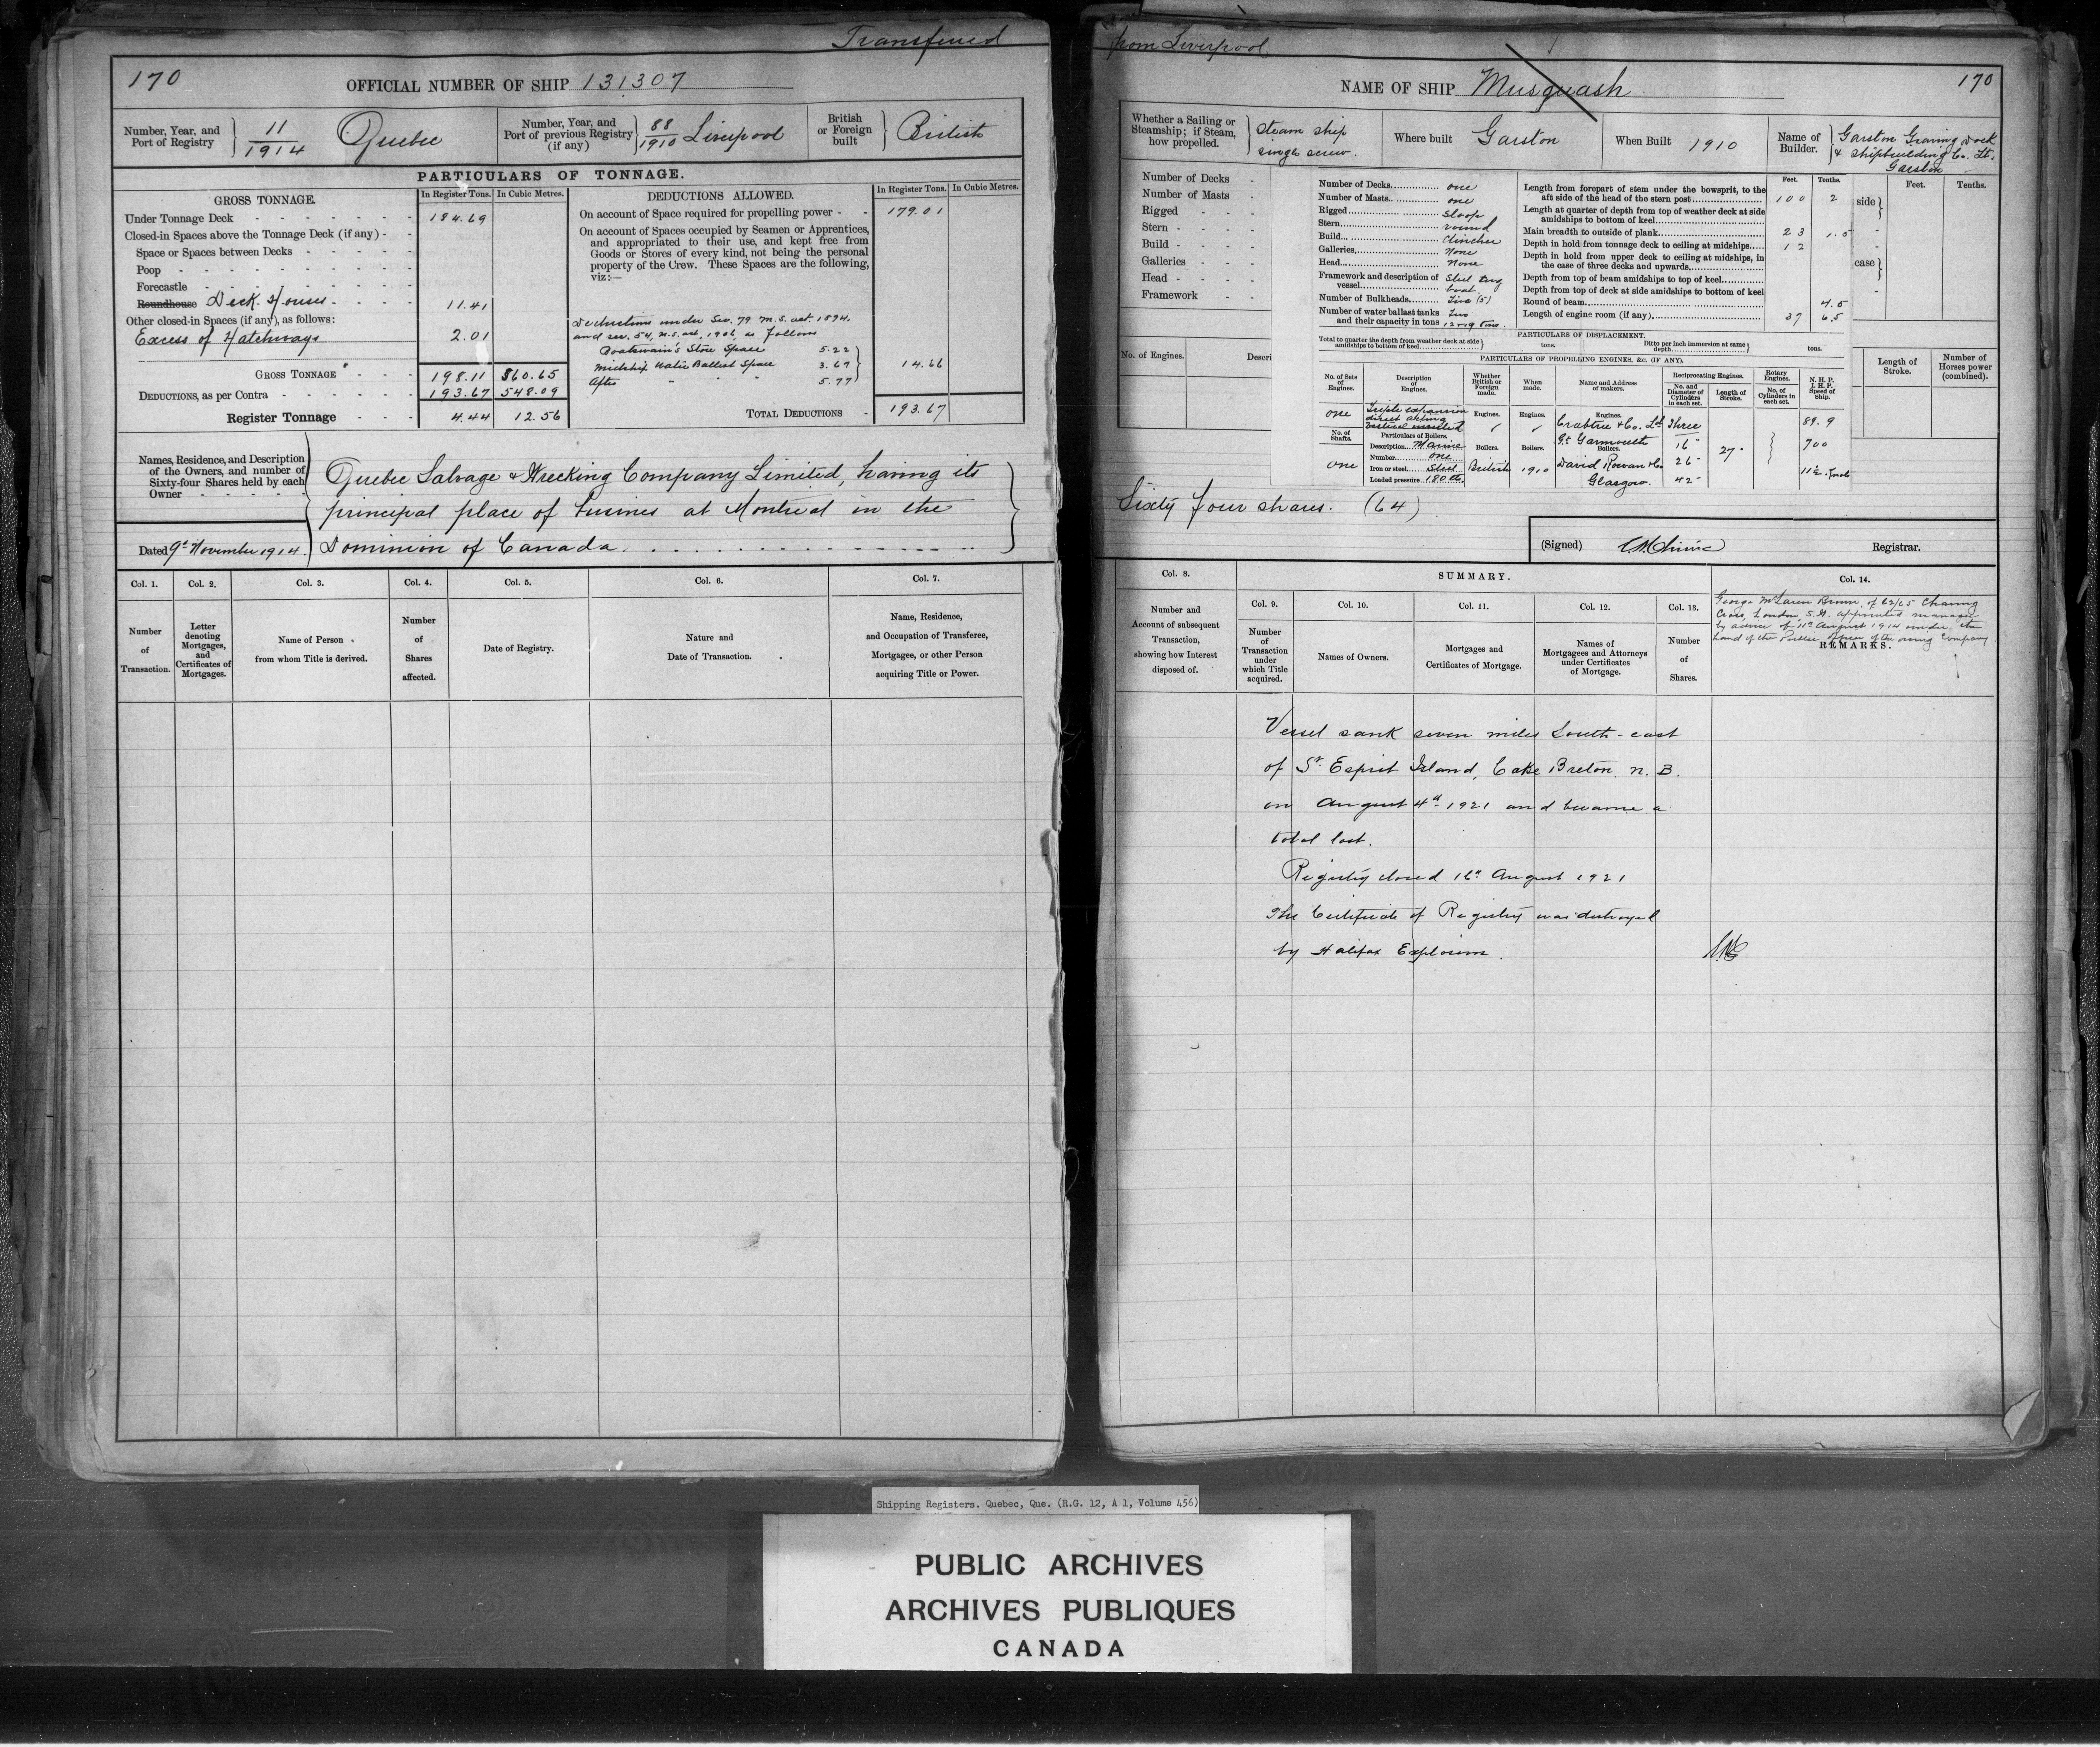 Transferred
170
OFFICIAL NUMBER OF SHIP 131307
Number, Year, and Port of Registry
11/1914 Quebec
Number, Year, and Port of previous Registry (if any)
88/1910 Liverpool
British or Foreign built
British
PARTICULARS OF TONNAGE.
GROSS TONNAGE.
In Register Tons. In Cubic Metres.
DEDUCTIONS ALLOWED.
In Register Tons. In Cubic Metres.
Under Tonnage Deck - - - - - - - 184.69
Closed-in Spaces above the Tonnage Deck (if any) - -
Space or Spaces between Decks - - - - -
Poop - - - - - - - - - -
Forecastle - - - - - - - - -
Roundhouse Deck Houses - - - - 11.41
Other closed-in Spaces (if any), as follows:
Excess of Hatchways 2.01
GROSS TONNAGE - - - 198.11 560.65
DEDUCTIONS, as per Contra - - - - - 193.67 548.09
Register Tonnage - - - 4.44 12.56
On account of Space required for propelling power - - 179.01
On account of Spaces occupied by Seamen or Apprentices,
and appropriated to their use, and kept free from
Goods or Stores of every kind, not being the personal
property of the Crew. These Spaces are the following,
viz:—
Deductions under Sec. 79 M.S. act. 1894.
and sec. 54, M.S. act, 1906, as follows
Boatswain's Store Space 5.22
Midship Water Ballast Space 3.67 14.66
After " " " 5.77
TOTAL DEDUCTIONS - 193.67
Names, Residence, and Description
of the Owners, and number of
Sixty-four Shares held by each
Owner - - - - -
Quebec Salvage & Wrecking Company Limited, having its
principal place of business at Montreal in the
Dated 9th November 1914. Dominion of Canada
Col. 1. Col. 2. Col. 3. Col. 4. Col. 5. Col. 6. Col. 7.
Number of Transaction.
Letter denoting Mortgages, and Certificates of Mortgages.
Name of Person from whom Title is derived.
Number of Shares affected.
Date of Registry.
Nature and Date of Transaction.
Name, Residence, and Occupation of Transferee, Mortgagee, or other Person acquiring Title or Power.
from Liverpool
NAME OF SHIP Musquash
170
Whether a Sailing or Steamship; if Steam, how propelled.
Steam ship single screw.
Where built Garston
When Built 1910
Name of Builder.
Garston Graving Dock
& Shipbuilding Co. Lt.
Garston
Number of Decks -
Number of Masts -
Rigged - - -
Stern - - - -
Build - - - -
Galleries - - -
Head - - - -
Framework - -
No. of Engines. Descri
Number of Decks one
Number of Masts one
Rigged Sloop
Stern round
Build Clincher
Galleries None
Head None
Framework and description of vessel Steel tug boat.
Number of Bulkheads Five (5)
Number of water ballast tanks and their capacity in tons Two 12 & 19 tons.
Feet. Tenths.
Length from forepart of stem under the bowsprit, to the
aft side of the head of the stern post 100 2
Length at quarter of depth from top of weather deck at side
amidships to bottom of keel
Main breadth to outside of plank 23 1.5
Depth in hold from tonnage deck to ceiling at midships 12
Depth in hold from upper deck to ceiling at midships, in
the case of three decks and upwards
Depth from top of beam amidships to top of keel
Depth from top of deck at side amidships to bottom of keel
Round of beam 4.5
Length of engine room (if any) 37 6.5
side
case
Feet. Tenths.
PARTICULARS OF DISPLACEMENT.
Total to quarter the depth from weather deck at side amidships to bottom of keel tons.
Ditto per inch immersion at same depth tons.
PARTICULARS OF PROPELLING ENGINES, &c. (IF ANY).
No. of Sets of Engines.
Description of Engines.
Whether British or Foreign made.
When made.
Name and Address of makers.
Reciprocating Engines.
No. and Diameter of Cylinders in each set.
Length of Stroke.
Rotary Engines.
No. of Cylinders in each set.
N. H. P.
I. H. P.
Speed of Ship.
one Triple expansion direct acting vertical inverted
Engines. Engines. Engines.
Crabtree & Co. Ltd
Gt. Yarmouth
Three
16"
26"
42"
27"
89.9
700
11½ Knots
No. of Shafts.
one
Particulars of Boilers.
Description Marine
Number one
Iron or steel Steel
Loaded pressure 180 lbs.
Boilers. British
Boilers. 1910
Boilers.
David Rowan & Co
Glasgow.
Length of Stroke.
Number of Horses power (combined).
Sixty four shares. (64)
(Signed) Registrar.
Col. 8. SUMMARY. Col. 14.
Number and Account of subsequent Transaction, showing how Interest disposed of.
Col. 9. Col. 10. Col. 11. Col. 12. Col. 13.
Number of Transaction under which Title acquired.
Names of Owners.
Mortgages and Certificates of Mortgage.
Names of Mortgagees and Attorneys under Certificates of Mortgage.
Number of Shares.
George McLaren Brown, of 62/65 Charing
Cross, London S.W. appointed manager
by advice of 11th August 1914 under the
hand of the Public Officer of the owning Company
REMARKS.
Vessel sank seven miles South-east
of St. Esprit Island, Cake Breton N.B.
on August 4th 1921 and became a
total lost.
Registry closed 16th August 1921
The Certificate of Registry was destroyed
by Halifax Explosion.
Shipping Registers. Quebec, Que. (R.G. 12, A 1, Volume 456)
PUBLIC ARCHIVES
ARCHIVES PUBLIQUES
CANADA